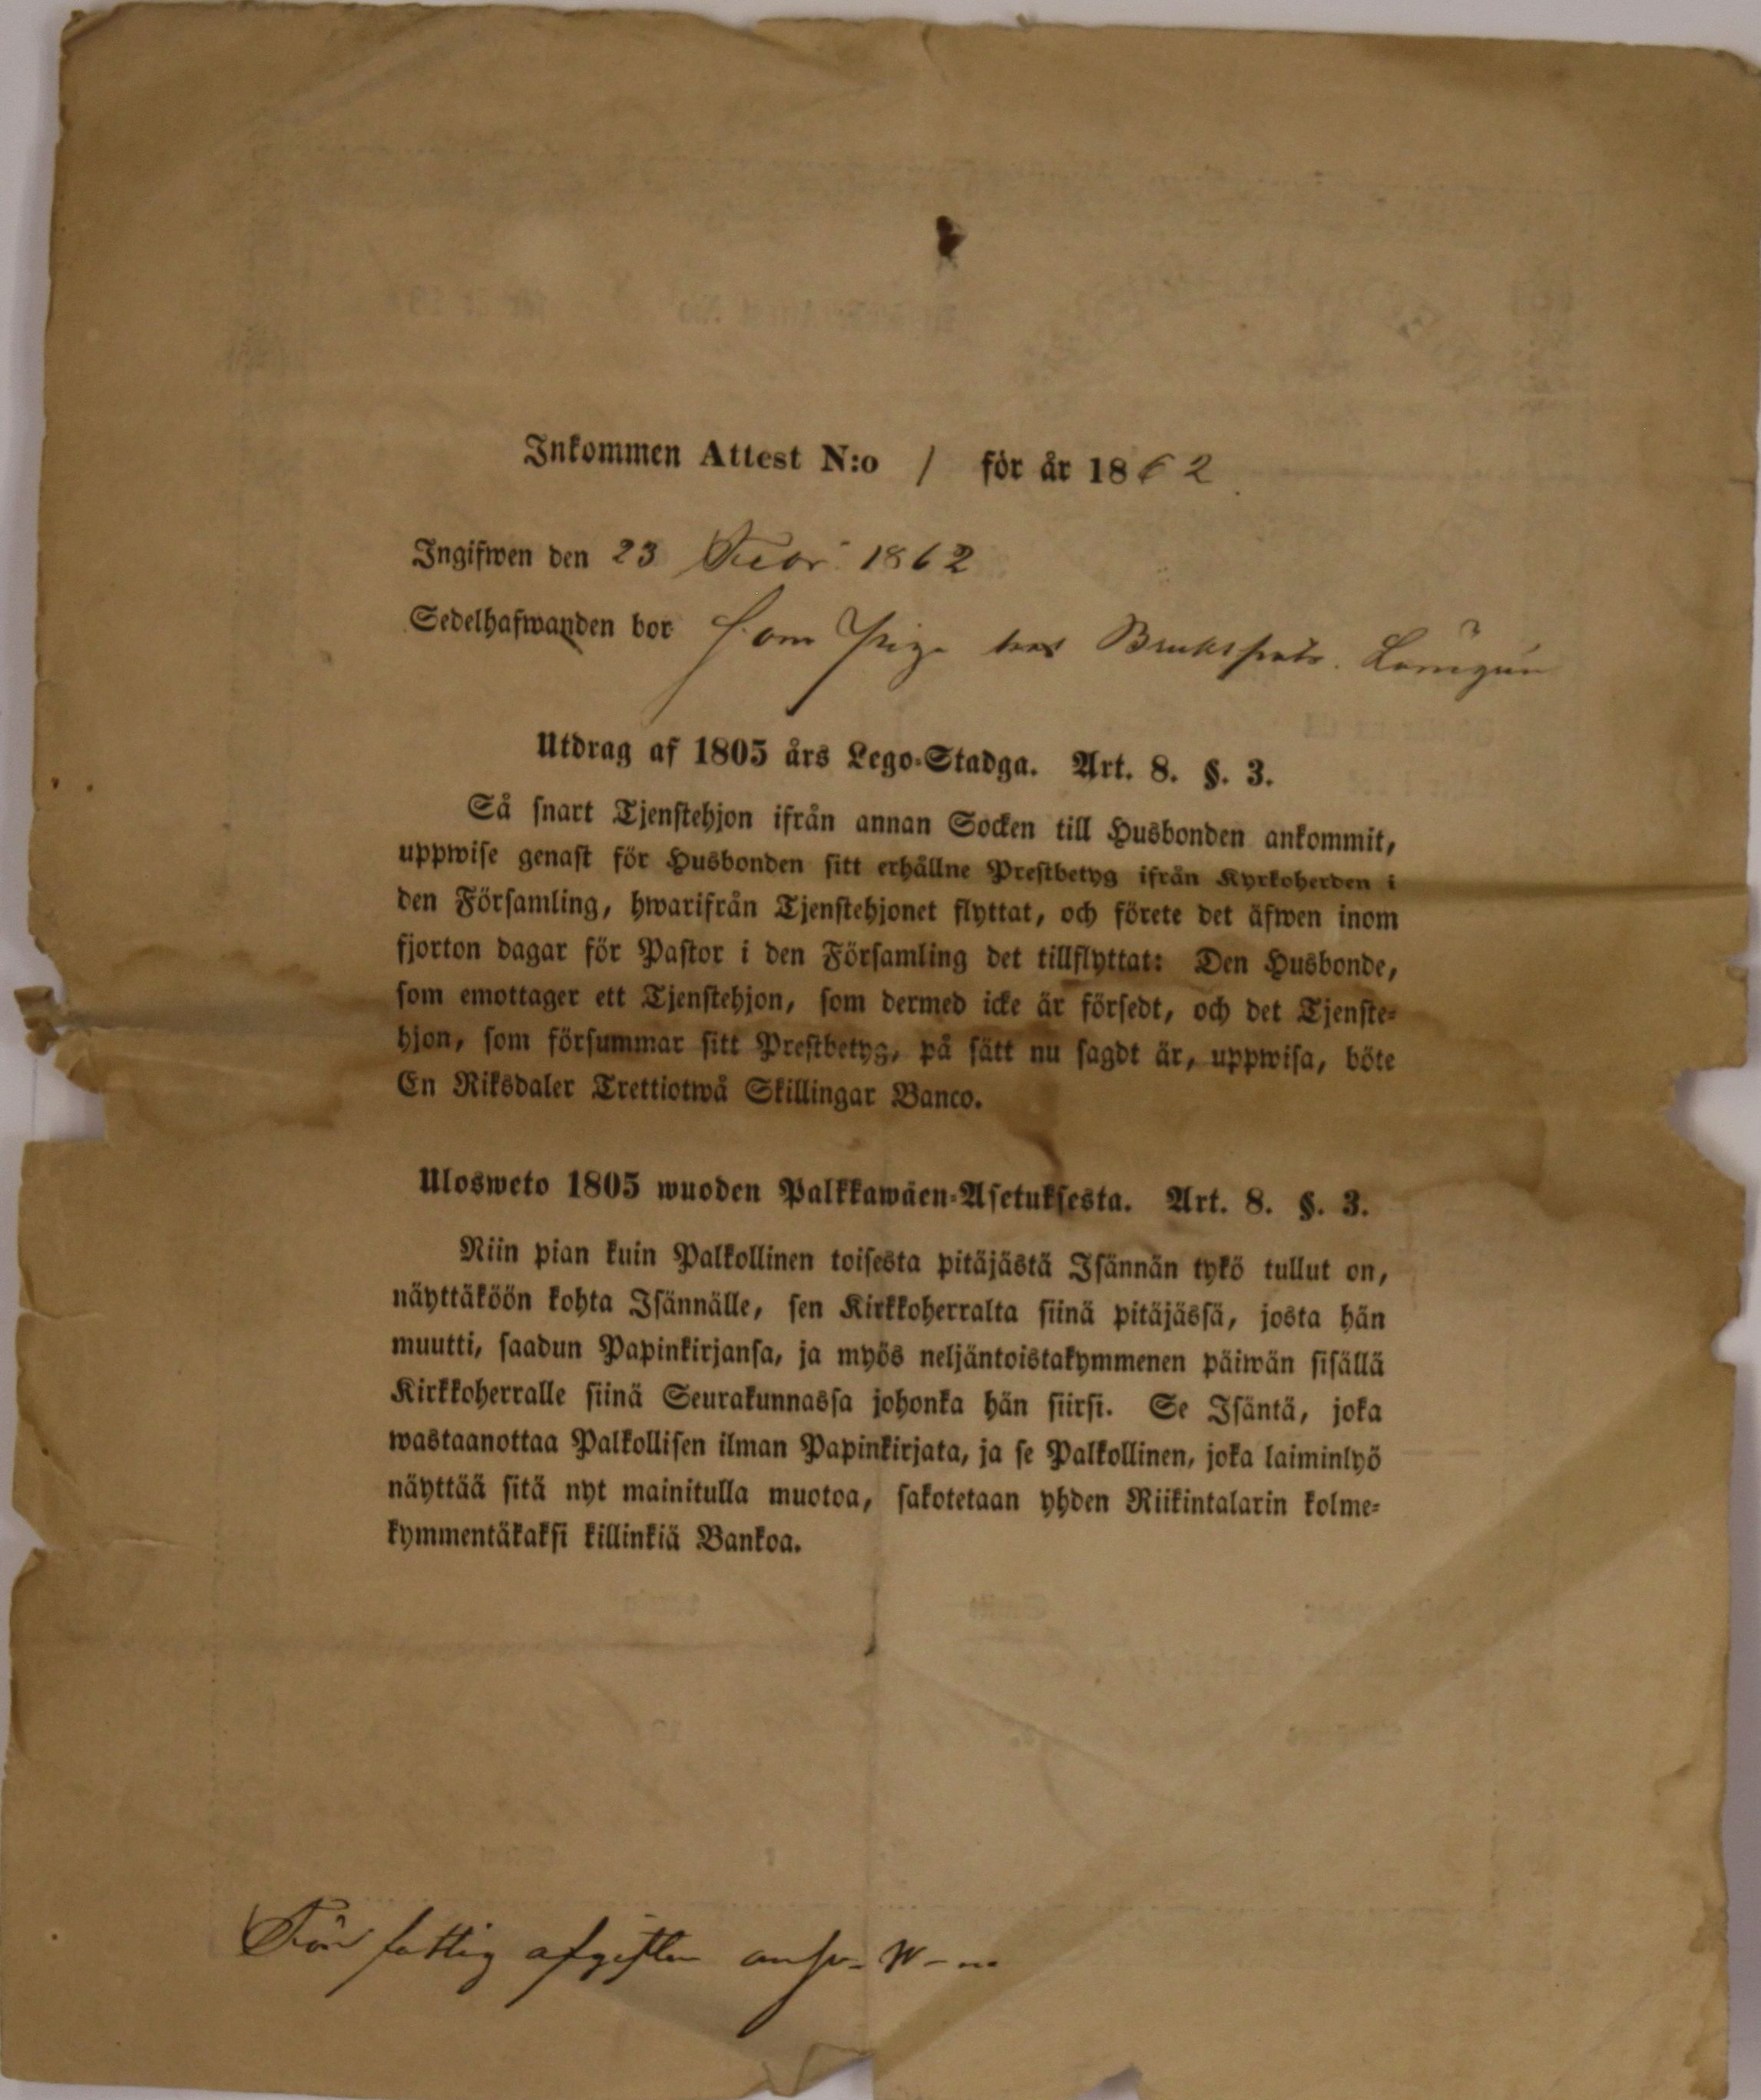 Inkommen Attest N:o 1 för år 1862
Ingifwen den 23 Febr 1862
Sedelhafwanden bor som Piga hos Brukspatr.
Utdrag af 1805 års Lego-Stadga. Art. 8. §. 3.
Så snart Tjenstehjon ifrån annan Socken till Husbonden ankommit,
uppwise genast för Husbonden sitt erhållne Prestbetyg ifrån Kyrkoherden i
den Församling, hwarifrån Tjenstehjonet flyttat, och förete det äfwen inom
fjorton dagar för Pastor i den Församling det tillflyttat: Den Husbonde,
som emottager ett Tjenstehjon, som dermed icke är försedt, och det Tjenste-
hjon, som försummar sitt Prestbetyg, på sätt nu sagdt är, uppwisa, böte
En Riksdaler Trettiotwå Skillingar Banco.
Ulosweto 1805 wuoden Palkkawäen-Asetuksesta. Art. 8. §. 3.
Niin pian kuin Palkollinen toisesta pitäjästä Isännän tykö tullut on,
näyttäköön kohta Isännälle, sen Kirkkoherralta siinä pitäjässä, josta hän
muutti, saadun Papinkirjansa, ja myös neljäntoistakymmenen päiwän sisällä
Kirkkoherralle siinä Seurakunnassa johonka hän siirsi. Se Isäntä, joka
wastaanottaa Palkollisen ilman Papinkirjata, ja se Palkollinen, joka laiminlyö
näyttää sitä nyt mainitulla muotoa, sakotetaan yhden Riikintalarin kolme-
kymmentäkaksi killinkiä Bankoa.
För fattig afgiften